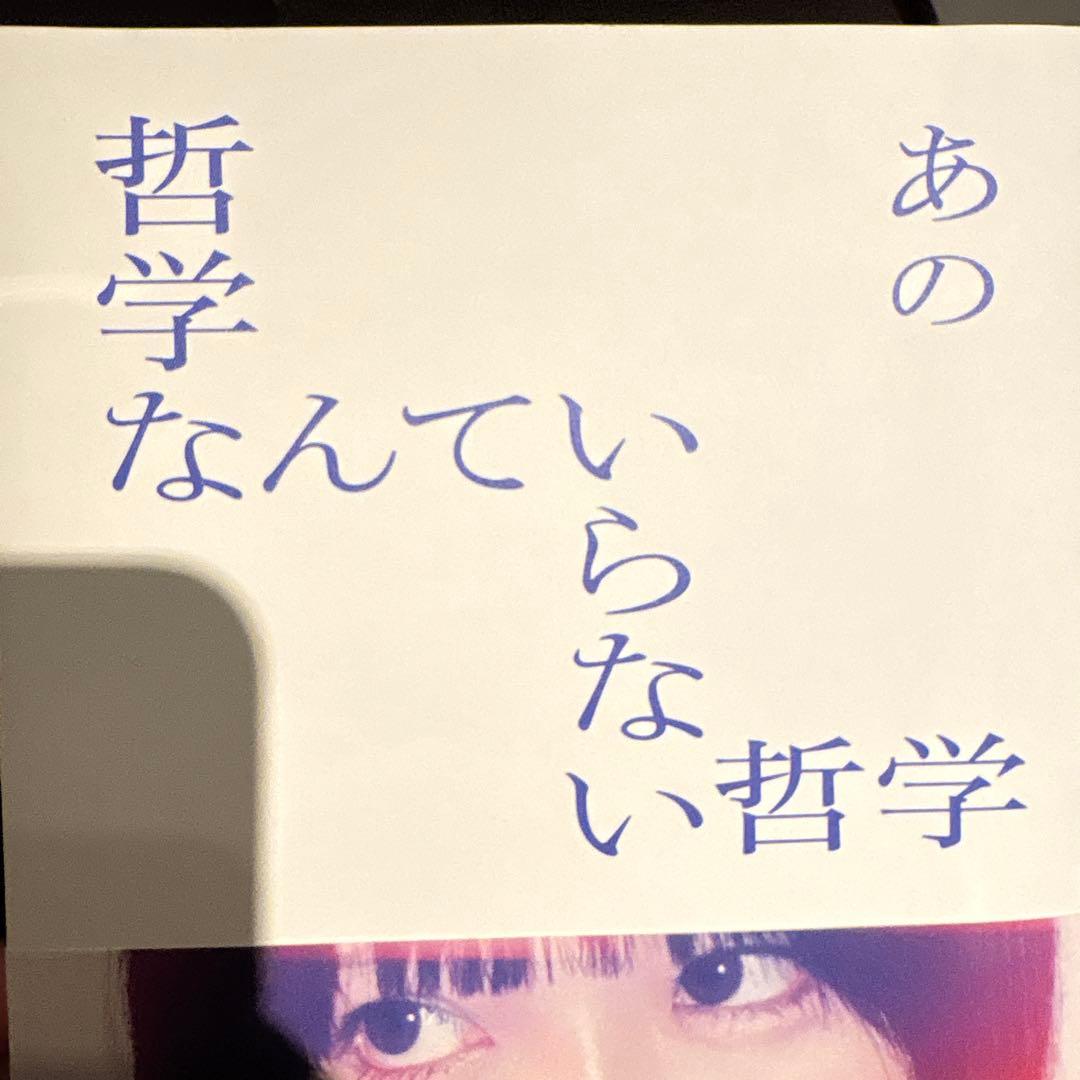 あの
哲学なんていらない哲学